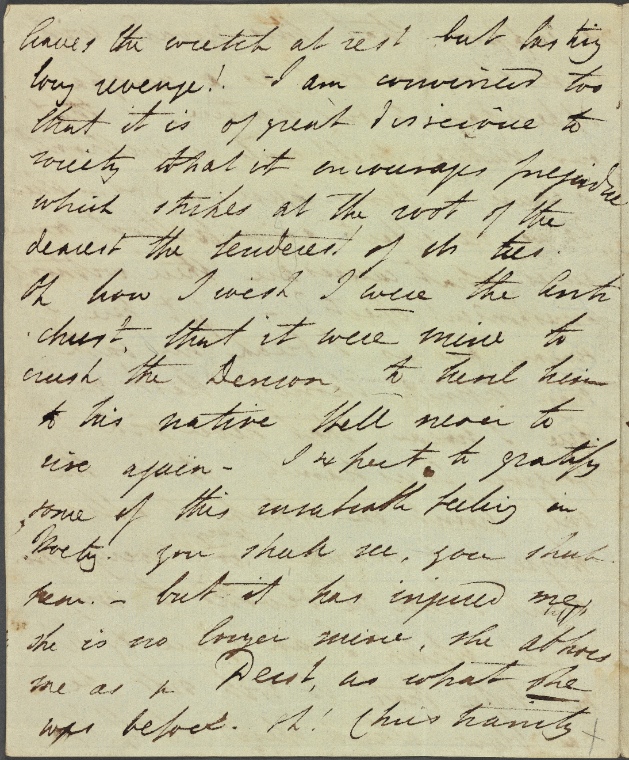 leaves the wretch at rest but lasting
long revenge! - I am convinced too
that it is of great disservice to
society that it encourages prejudice
which strikes at the root of the
dearest the tenderest of its ties.
Oh how I wish I were the Anti
christ, that it were mine to
crush the Demon, to hurl him
to his native Hell never to
rise again - I expect to gratify
some of this insatiable feeling in
Poetry. you shall see, you shall
hear. - but it has injured me
she is no longer mine, she abhors
me as a Deist, as what she
was before. Oh! Christianity